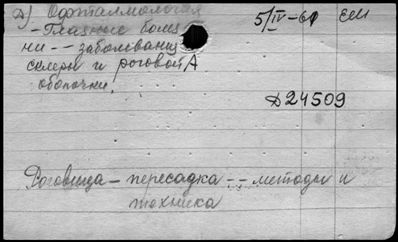 Д) Офталмология
5/IV-61 ЕМ
- Глазные болез
ни -- заболевания
склеры и роговой
оболочки.
Д24509
Роговица - пересадка -- методы и
техника